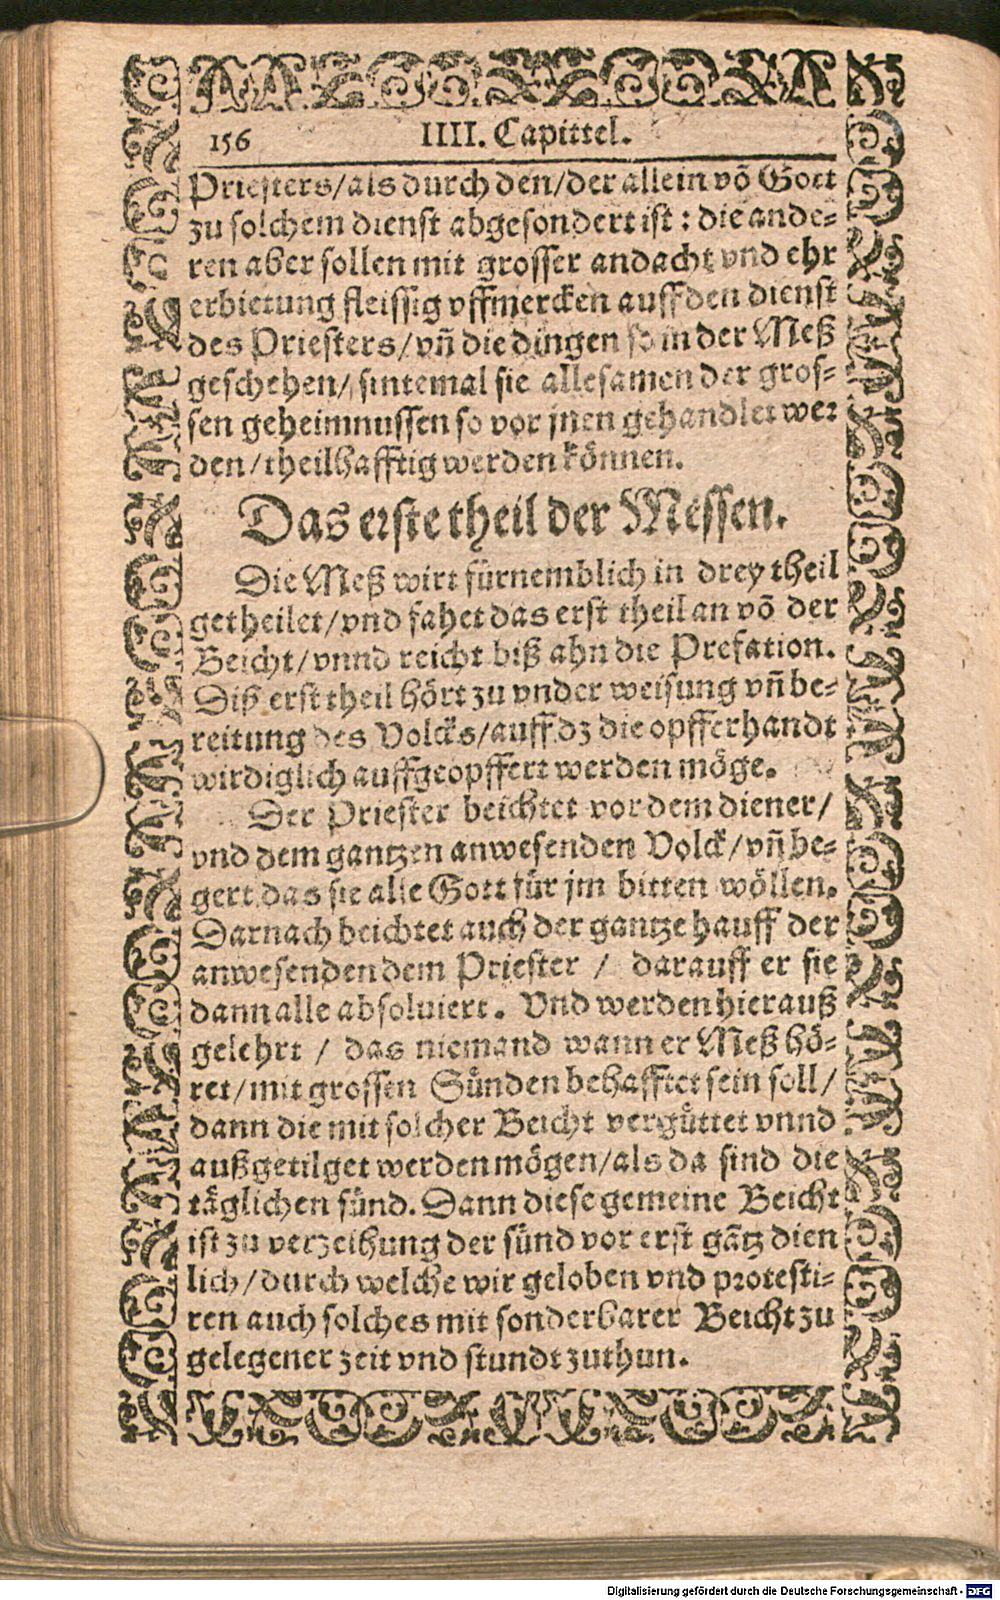 156 IIII. Capittel.
Priesters/als durch den/der allein võ Gott
zu solchem dienst abgesondert ist: die ande-
ren aber sollen mit grosser andacht vnd ehr
erbietung fleissig vffmercken auff den dienst
des Priesters/vñ die dingen so in der Meß
geschehen/sintemal sie allesamen der gros-
sen geheimnussen so vor jnen gehandlet wer
den/theilhafftig werden können.
Das erste theil der Messen.
Die Meß wirt fürnemblich in drey theil
getheilet/vnd fahet das erst theil an võ der
Beicht/vnnd reicht biß ahn die Prefation.
Diß erst theil hört zu vnder weisung vñ be-
reitung des Volcks/auff dz die opfferhandt
wirdiglich auffgeopffert werden möge.
Der Priester beichtet vor dem diener/
vnd dem gantzen anwesenden Volck/vñ be-
gert das sie alle Gott für jm bitten wöllen.
Darnach beichtet auch der gantze hauff der
anwesenden dem Priester / darauff er sie
dann alle absoluiert. Vnd werden hierauß
gelehrt / das niemand wann er Meß hö-
ret/mit grossen Sünden behafftet sein soll/
dann die mit solcher Beicht vergüttet vnnd
außgetilget werden mögen/als da sind die
täglichen sünd. Dann diese gemeine Beicht
ist zu verzeihung der sünd vor erst gãtz dien
lich/durch welche wir geloben vnd protesti-
ren auch solches mit sonderbarer Beicht zu
gelegener zeit vnd stundt zuthun.
Digitalisierung gefördert durch die Deutsche Forschungsgemeinschaft - DFG